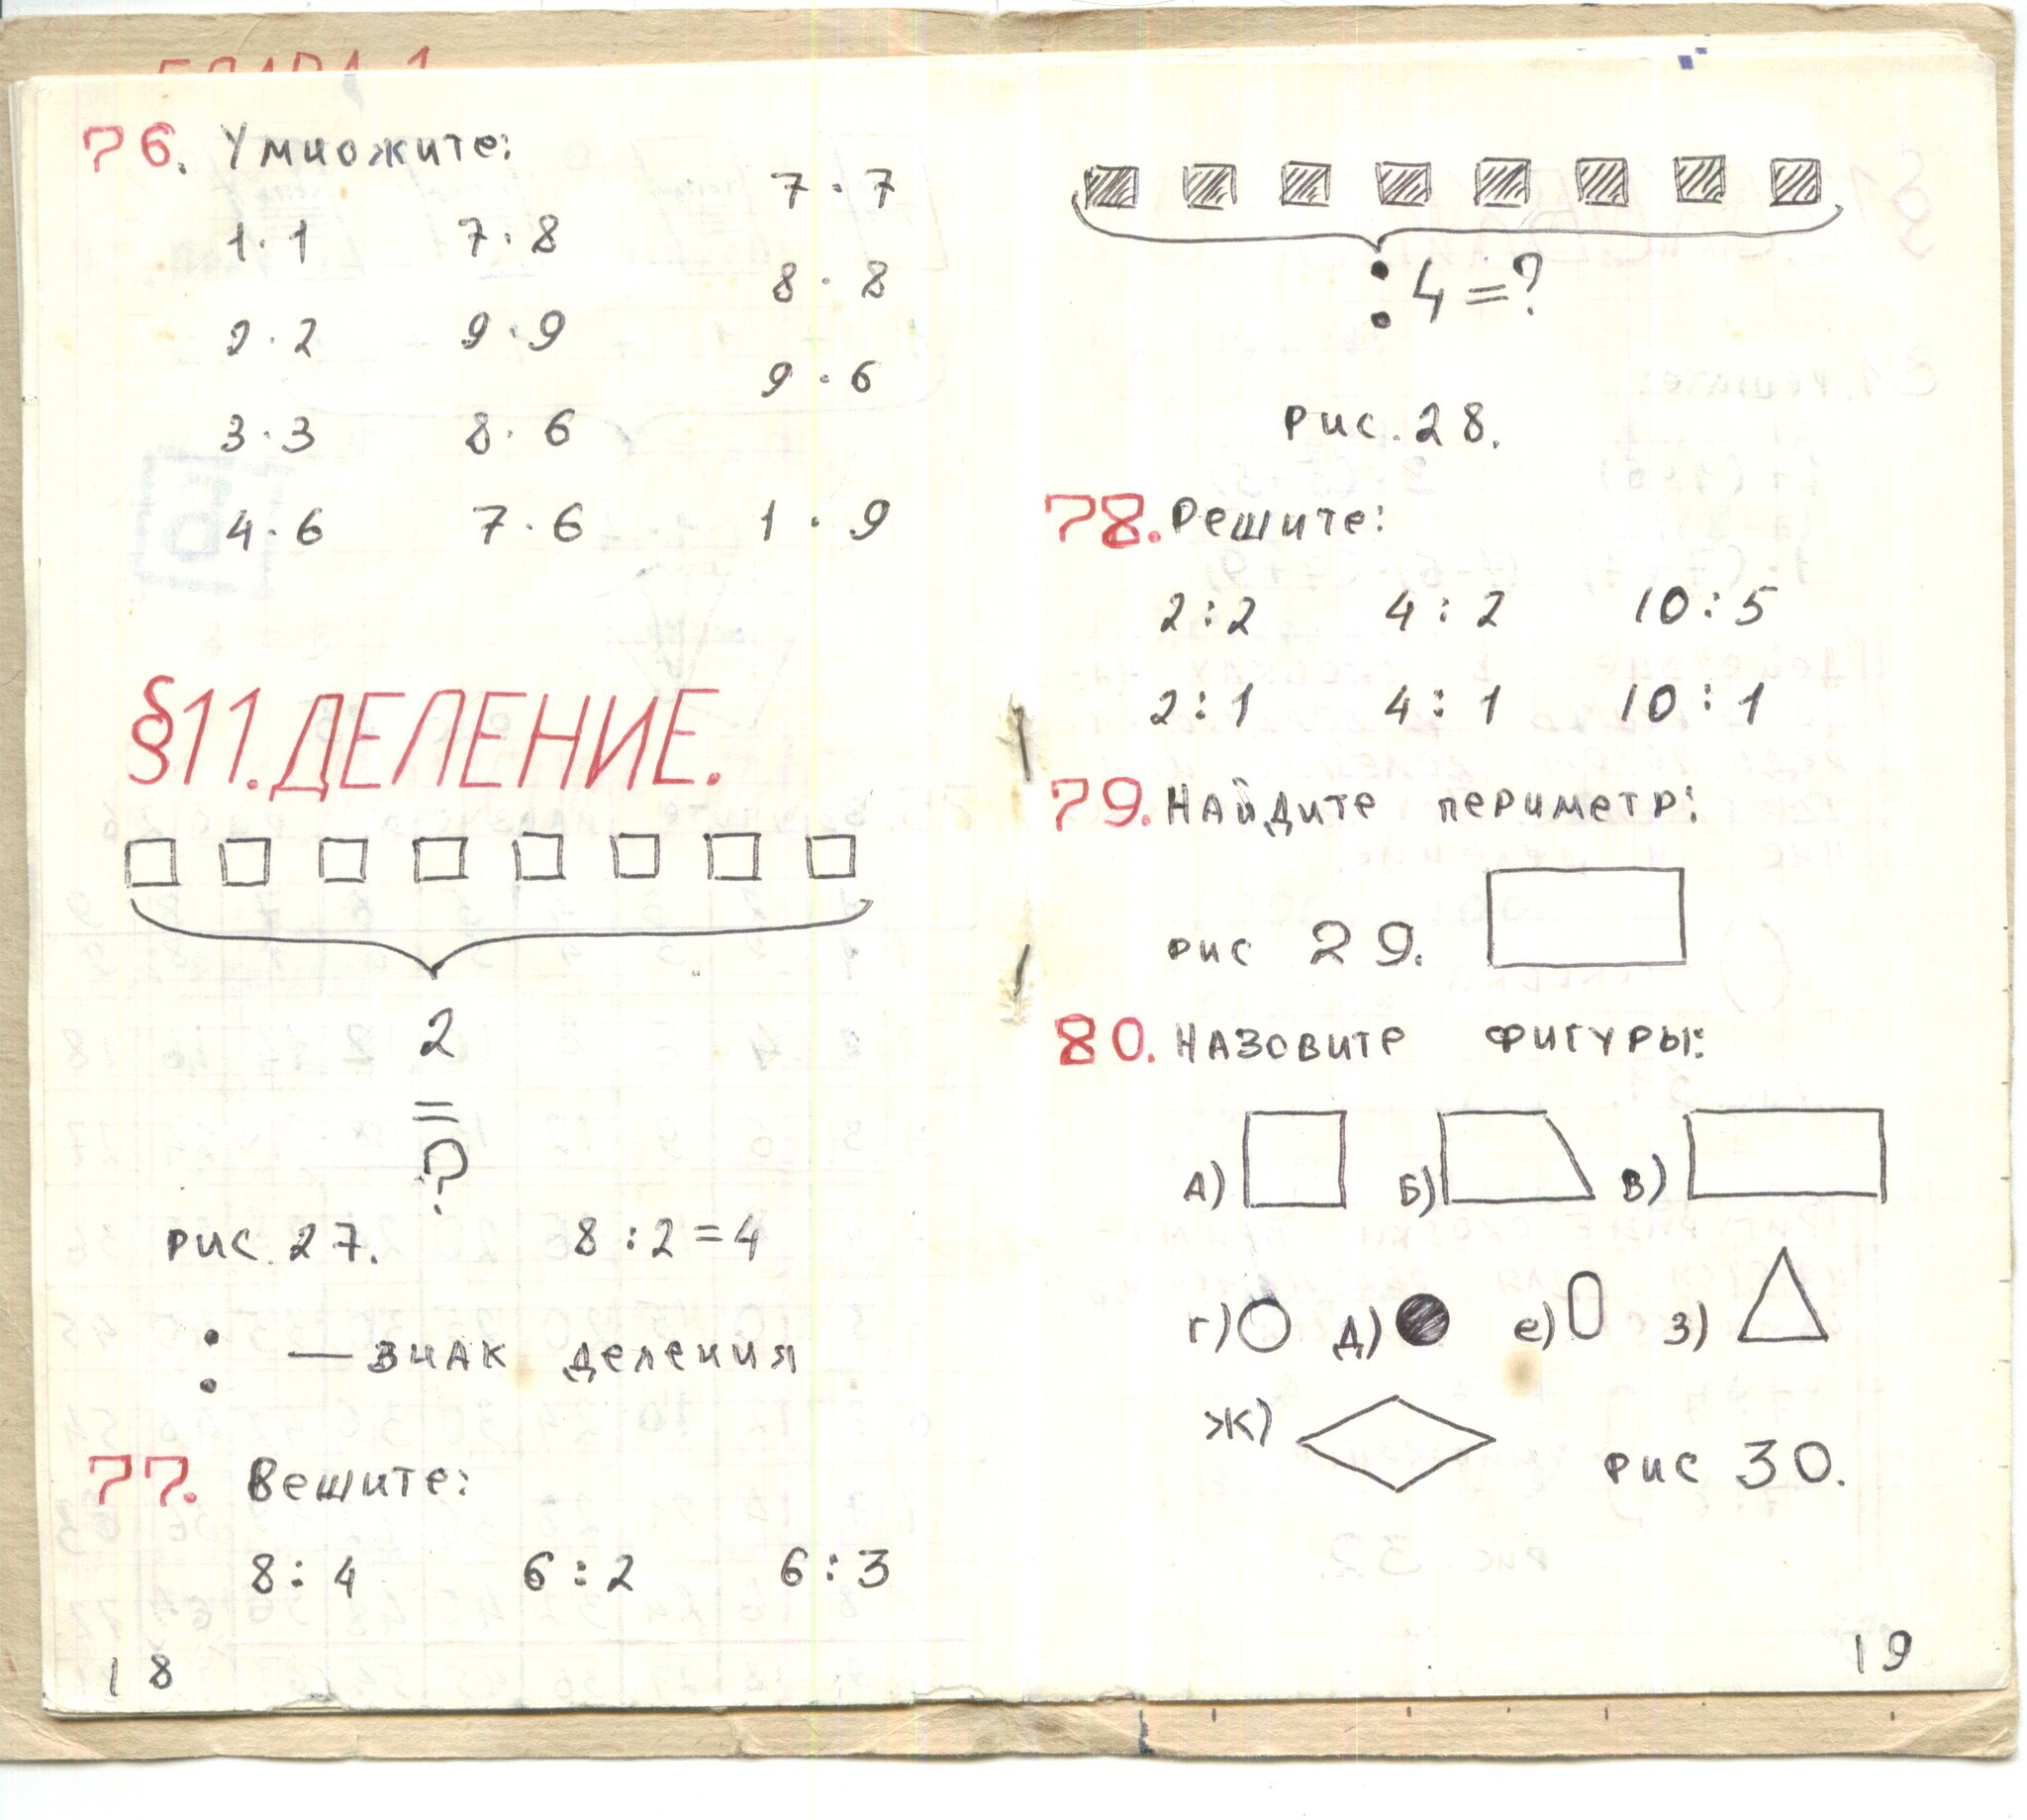 76. Умножите:
7·7
1·1 7·8
8·8
2·2 9·9
9·6
3·3 8·6
4·6 7·6 1·9
§11. ДЕЛЕНИЕ.
2
=
?
рис. 27. 8:2=4
: — знак деления
77. Вешите:
8:4 6:2 6:3
18
:4=?
рис. 28.
78. Решите:
2:2 4:2 10:5
2:1 4:1 10:1
79. Найдите периметр:
рис 29.
80. Назовите фигуры:
А) Б) В)
г) д) е) з)
ж) рис 30.
19